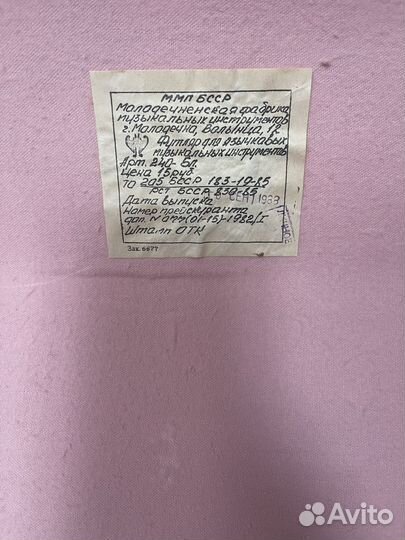 ММП БССР
Молодечненская фабрика
музыкальных инструментов
г. Молодечно, Волынца, 1
Футляр для язычковых
музыкальных инструментов
Арт. 240-Бл.
Цена 15 руб
ТО 205 БССР 183-19-85
РСТ БССР 830-85
Дата выпуска СЕНТ 1988
Номер прейскуранта
доп. N 077(01-15)-1982/I
Штамп ОТК
Зак. 6677
Avito